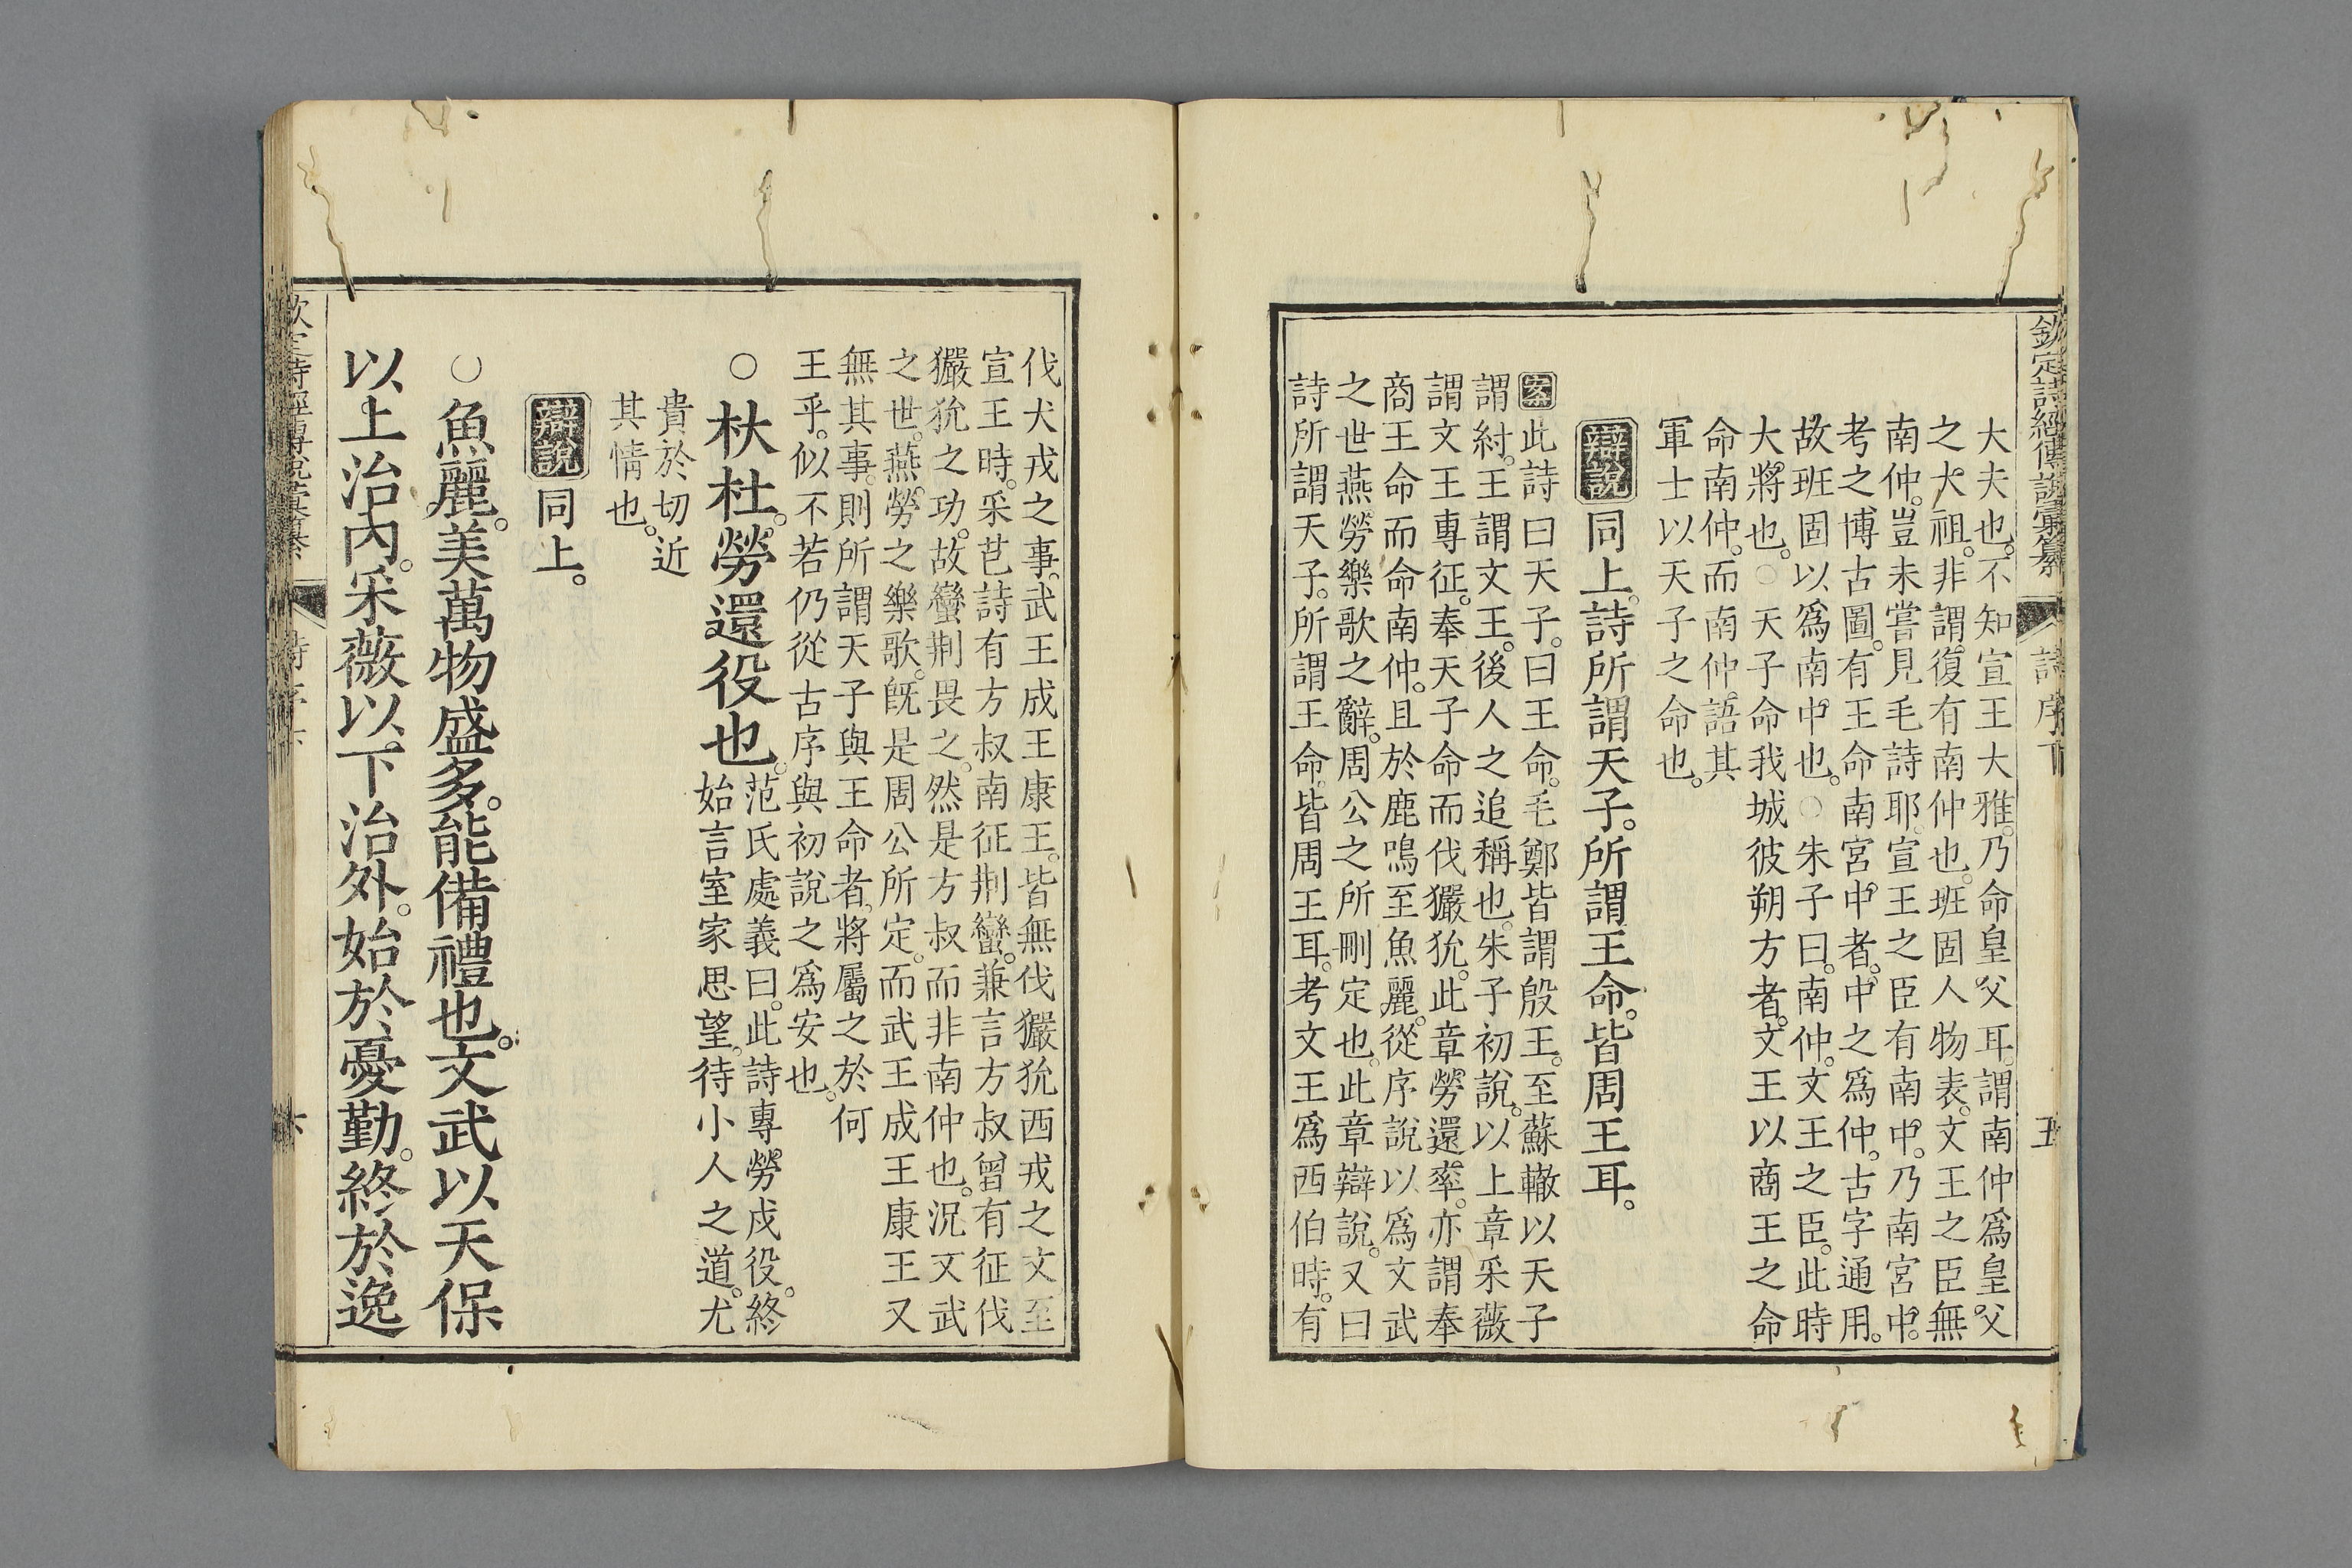 欽定詩經傳說彙纂 詩序下 五
大夫也。不知宣王大雅。乃命皇父耳。謂南仲爲皇父
之大祖。非謂復有南仲也。班固人物表。文王之臣無
南仲。豈未嘗見毛詩耶。宣王之臣有南中。乃南宮中。
考之博古圖。有王命南宮中者。中之爲仲。古字通用。
故班固以爲南中也。○朱子曰。南仲。文王之臣。此時
大將也。○天子命我城彼朔方者。文王以商王之命
命南仲。而南仲語其
軍士以天子之命也。
辯說同上。詩所謂天子。所謂王命。皆周王耳。
案此詩曰天子。曰王命。毛鄭皆謂殷王。至蘇轍以天子
謂紂。王謂文王。後人之追稱也。朱子初說。以上章采薇
謂文王專征。奉天子命而伐玁狁。此章勞還率。亦謂奉
商王命而命南仲。且於鹿鳴至魚麗。從序說以爲文武
之世燕勞樂歌之辭。周公之所刪定也。此章辯說。又曰
詩所謂天子。所謂王命。皆周王耳。考文王爲西伯時。有
伐犬戎之事。武王成王康王。皆無伐玁狁西戎之文。至
宣王時。采芑詩有方叔南征荆蠻。兼言方叔曾有征伐
玁狁之功。故蠻荆畏之。然是方叔而非南仲也。況文武
之世。燕勞之樂歌。旣是周公所定。而武王成王康王又
無其事。則所謂天子與王命者。將屬之於何
王乎。似不若仍從古序與初說之爲安也。
○杕杜。勞還役也。范氏處義曰。此詩專勞戍役。終
始言室家思望。待小人之道。尤
貴於切近
其情也。
辯說同上。
○魚麗。美萬物盛多。能備禮也。文武以天保
以上治內。采薇以下治外。始於憂勤。終於逸